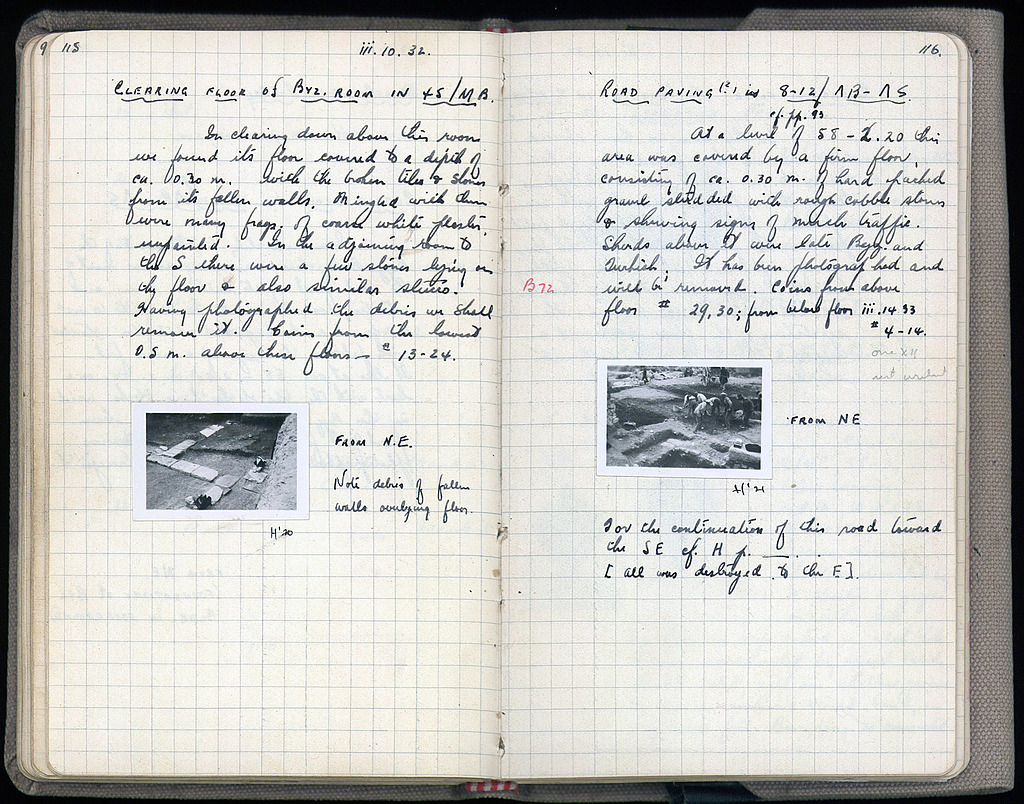 115
iii.10.32.
CLEARING FLOOR OF BYZ. ROOM IN 45/MB.
In clearing down above this room
we found its floor covered to a depth of
ca. 0.30 m. with the broken tiles & stones
from its fallen walls. Mingled with them
were many frags. of coarse white plaster,
unpainted. In the adjoining room to
the S there were a few stones lying on
the floor & also similar stucco.
Having photographed the debris we shall
remove it. Coins from the lowest
0.5 m. above these floors — # 13-24.
FROM N.E.
Note debris of fallen
walls overlying floor.
H'20
116.
ROAD PAVING (?) in 8-12/ΛB-ΛS.
cf. pp. 93
At a level of 58 - 2.20 this
area was covered by a firm floor,
consisting of ca. 0.30 m. of hard packed
gravel studded with rough cobble stones
& showing signs of much traffic.
Sherds above it were late Byz. and
Turkish; It has been photographed and
BYZ
will be removed. Coins from above
floor # 29,30; from below floor iii.14.33
# 4-14.
FROM NE
H'21
For the continuation of this road toward
the SE cf. H p. ___ .
[all was destroyed to the E].